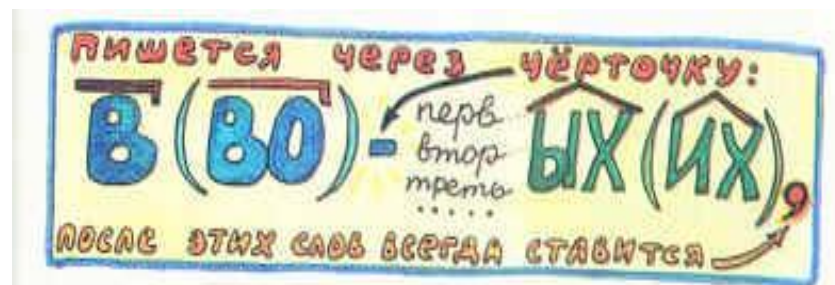 пишется через чёрточку:
В (ВО) - перв втор треть ..... ЫХ (ИХ),
после этих слов всегда ставится